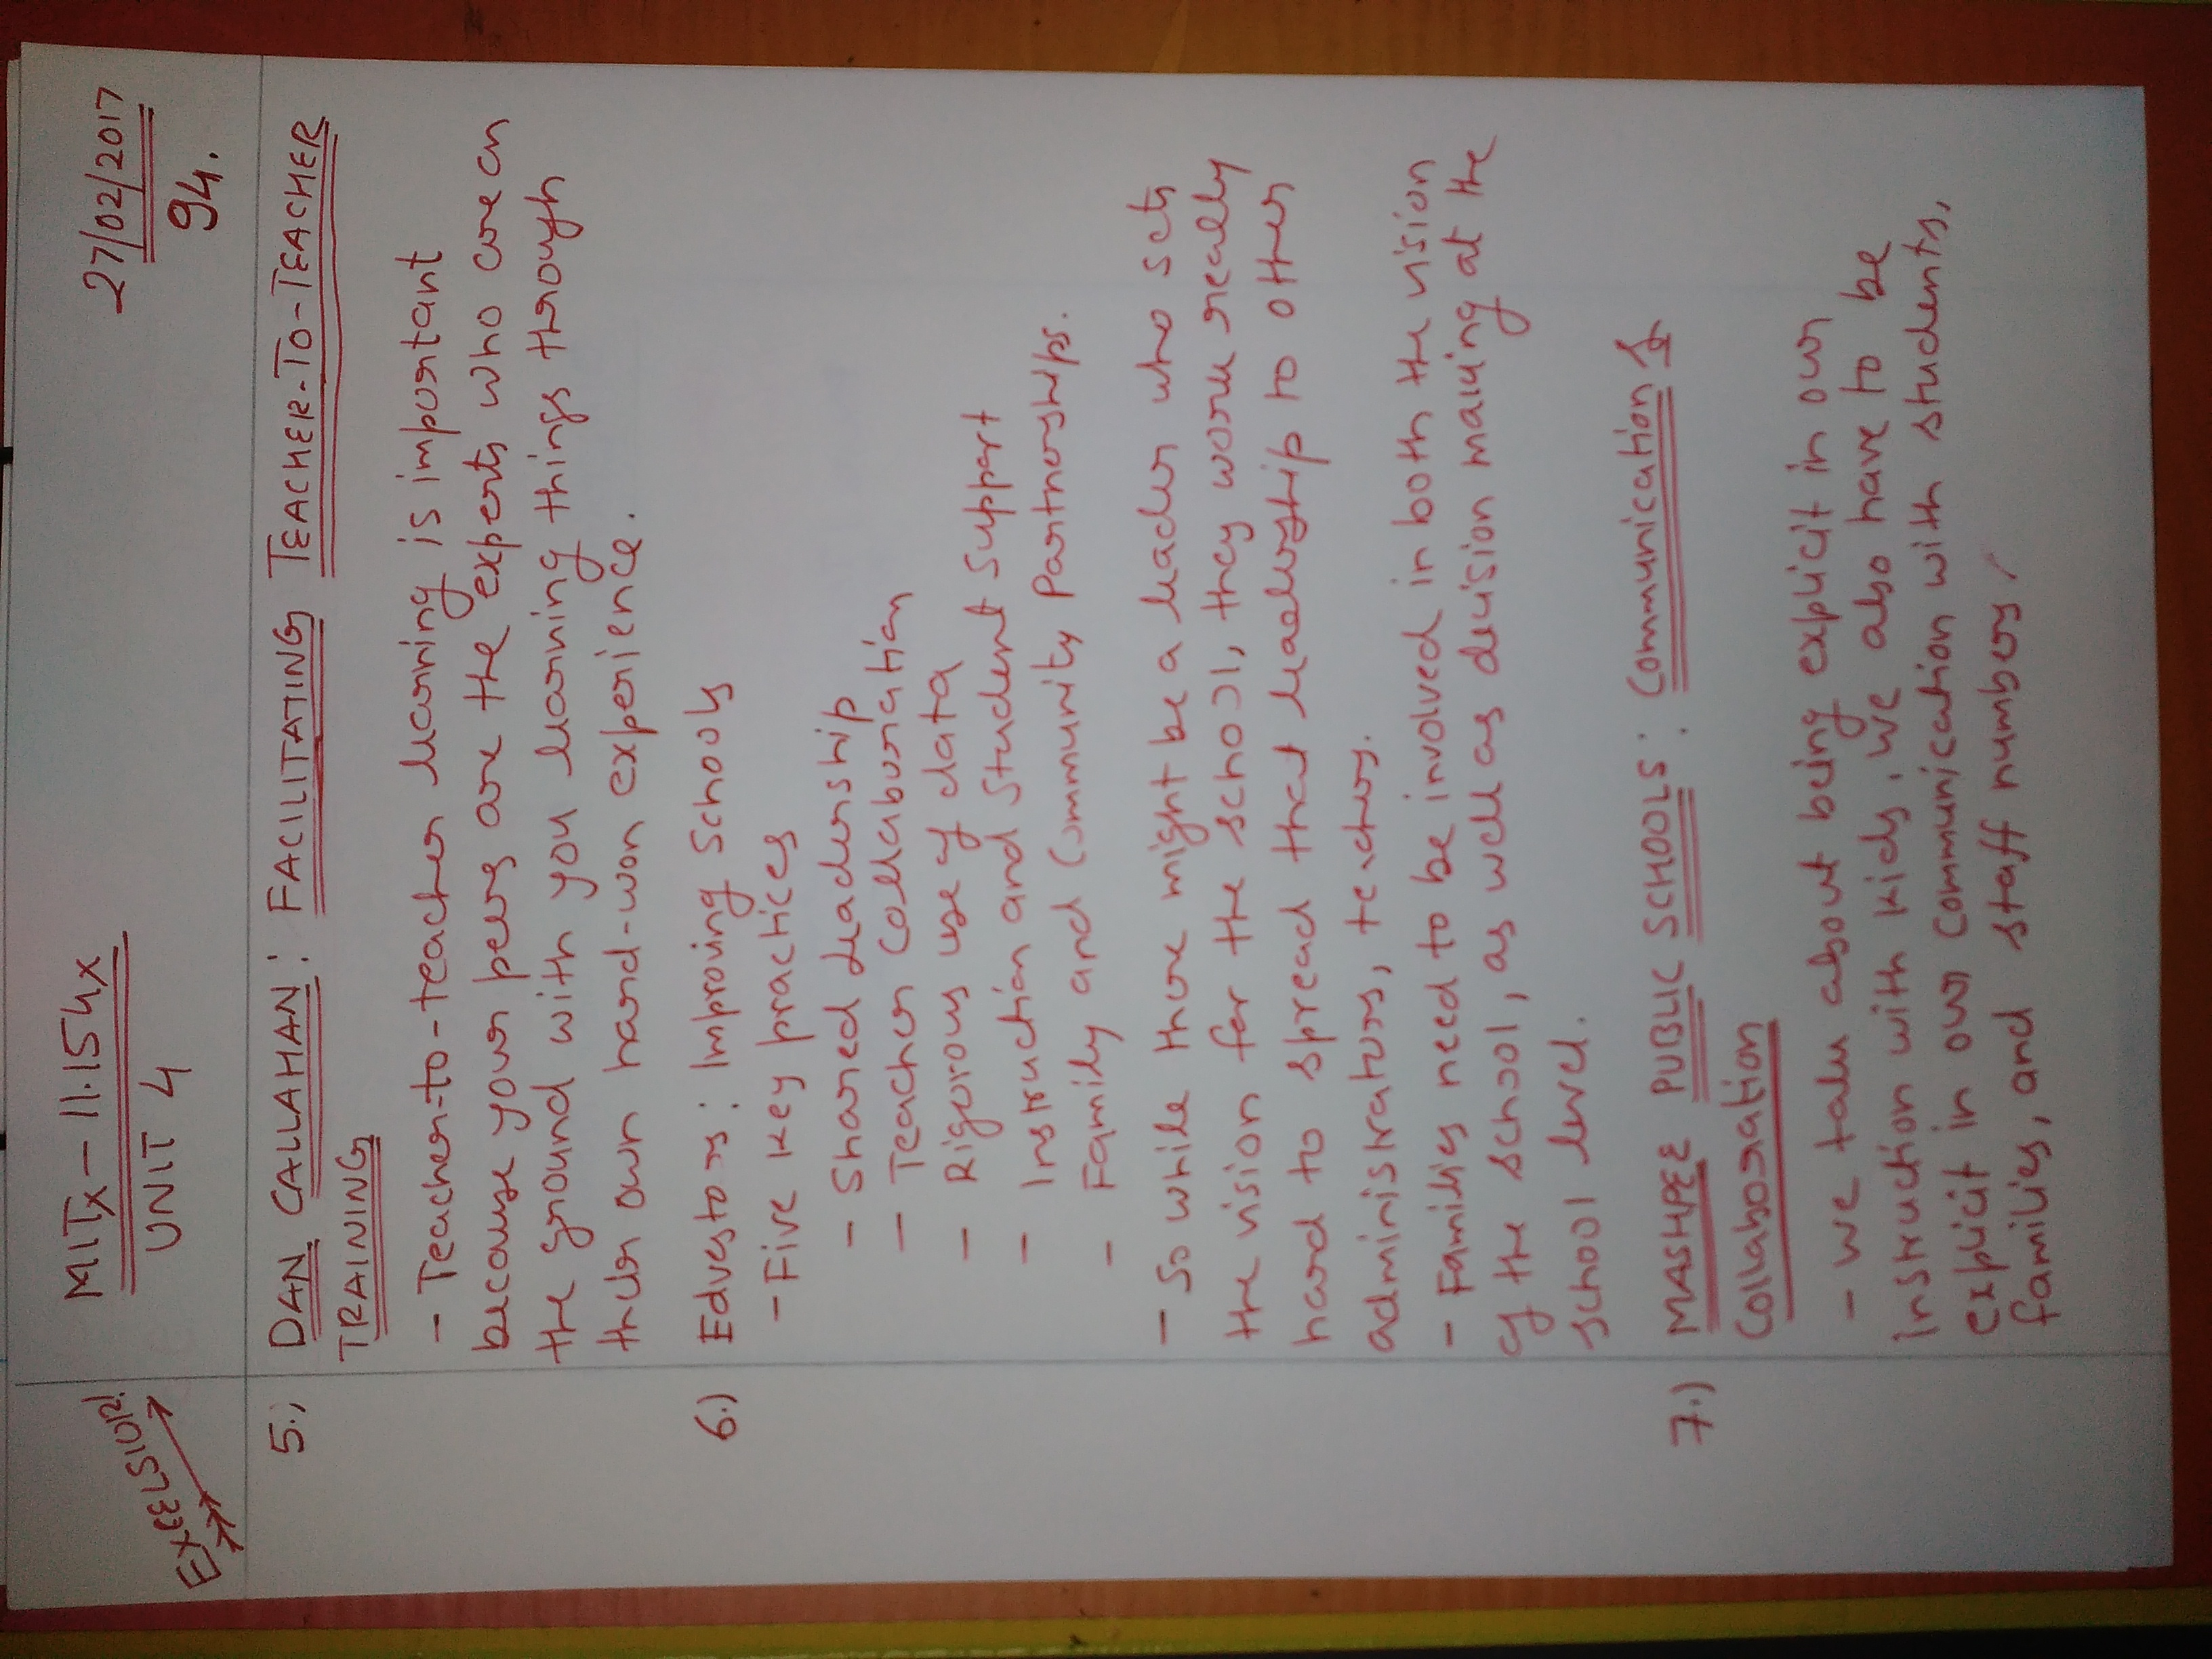 EXCELSIOR!
MITx - 11.154x
UNIT 4
27/02/2017
94.
5.) DAN CALLAHAN: FACILITATING TEACHER-TO-TEACHER
TRAINING
- Teacher-to-teacher learning is important
because your peers are the experts who are on
the ground with you learning things through
their own hard-won experience.
6.) Edvestors: Improving Schools
- Five key practices
- Shared Leadership
- Teacher Collaboration
- Rigorous use of data
- Instruction and Student Support
- Family and Community Partnerships.
- So while there might be a leader who sets
the vision for the school, they work really
hard to spread that leadership to other
administrators, teachers.
- Families need to be involved in both the vision
of the school, as well as decision making at the
school level.
7.) MASHPEE PUBLIC SCHOOLS: Communication &
Collaboration
- We talk about being explicit in our
instruction with kids, we also have to be
explicit in our communication with students,
families, and staff numbers.